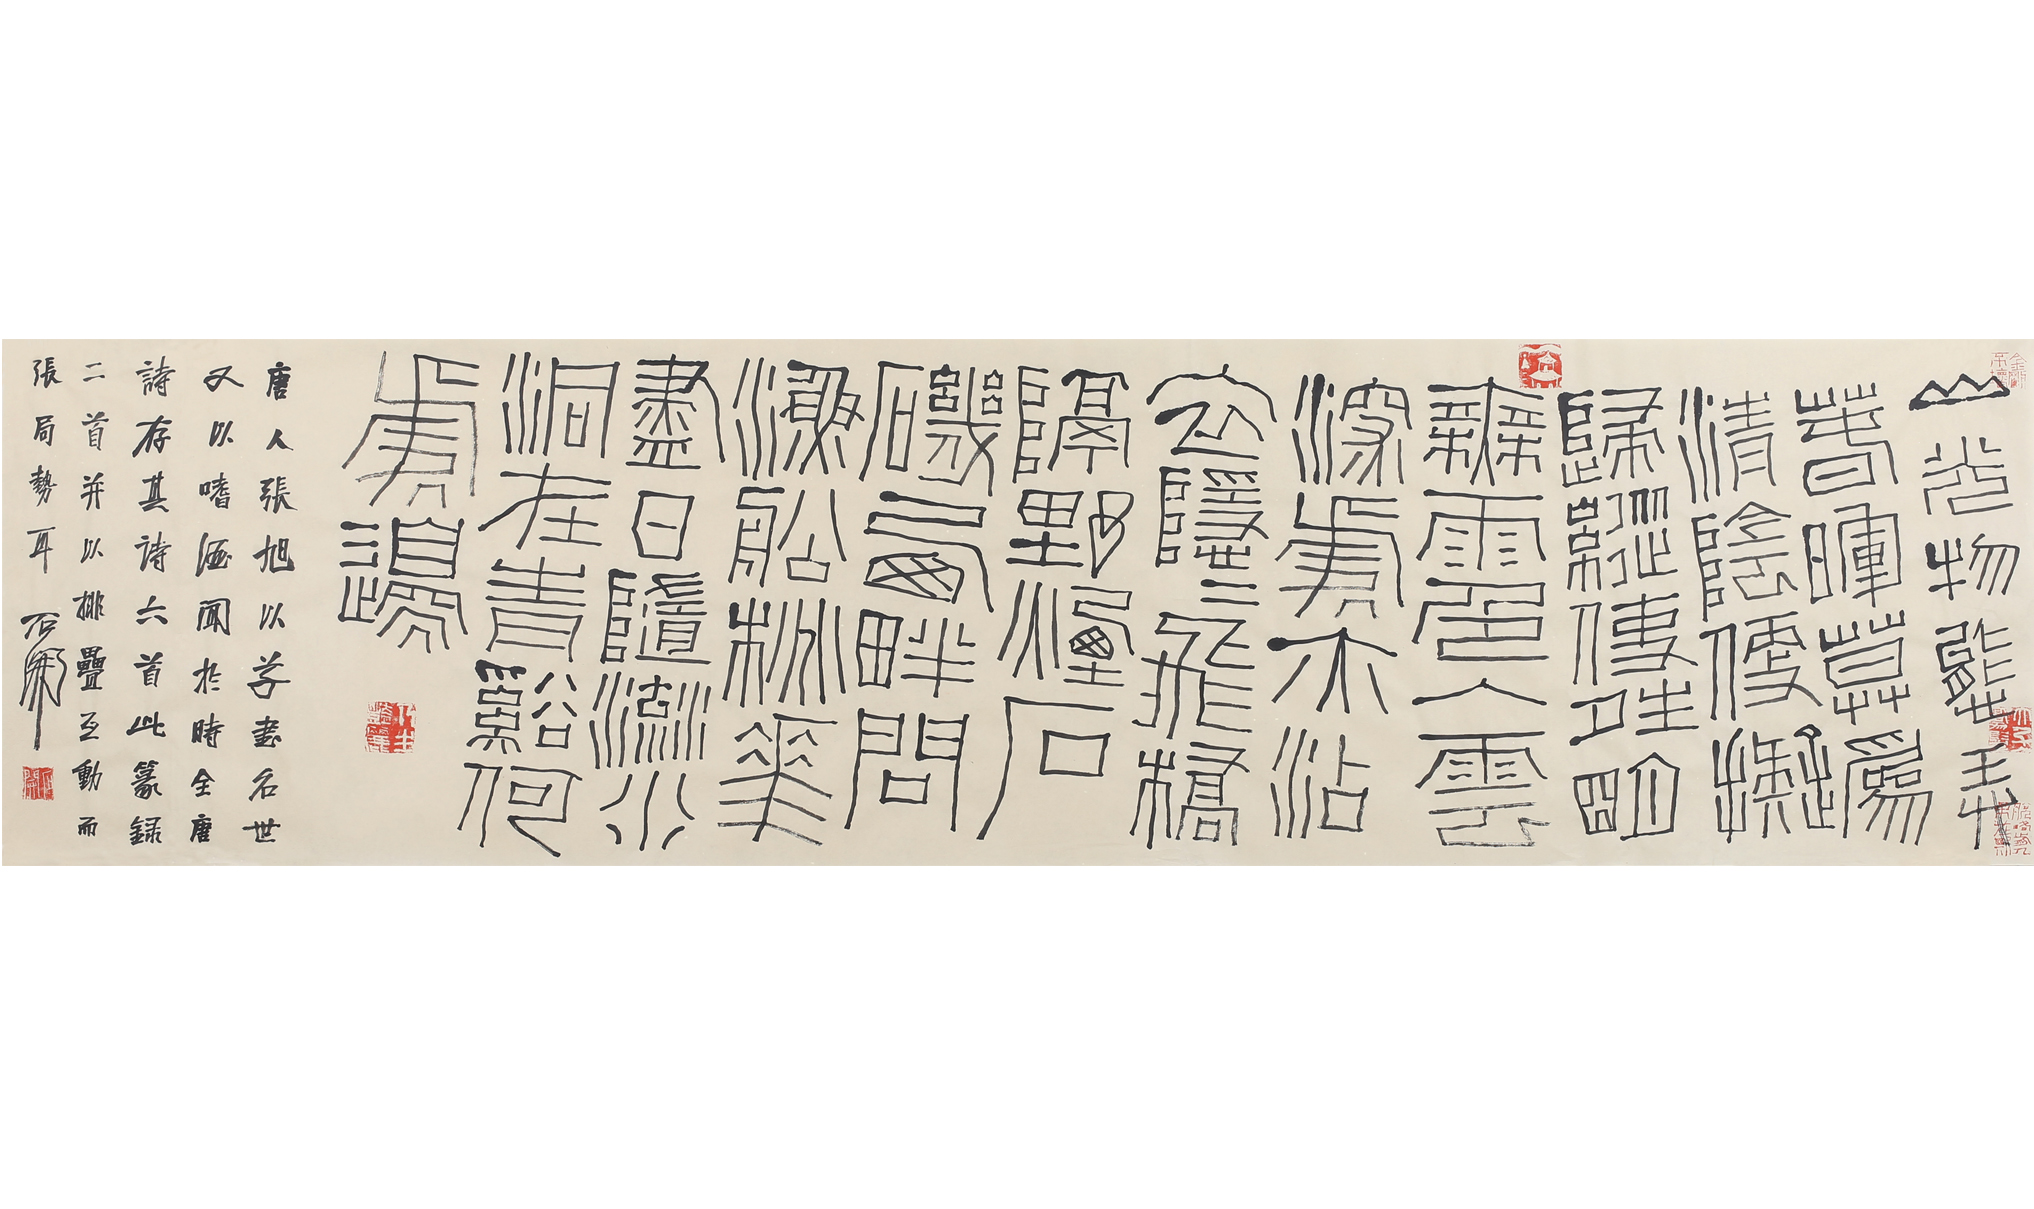 山光物態弄
春暉莫為
清陰便擬
歸縱使晴明
無雨色入雲
深處亦沾
衣隱〻飛橋
隔野煙石
磯西畔問
漁船桃花
盡日隨流水
洞在青谿何
處邊
唐人張旭以草書名世
又以嗜酒聞於時全唐
詩存其詩六首此篆録
二首并以排疊互動而
張局勢耳 石開